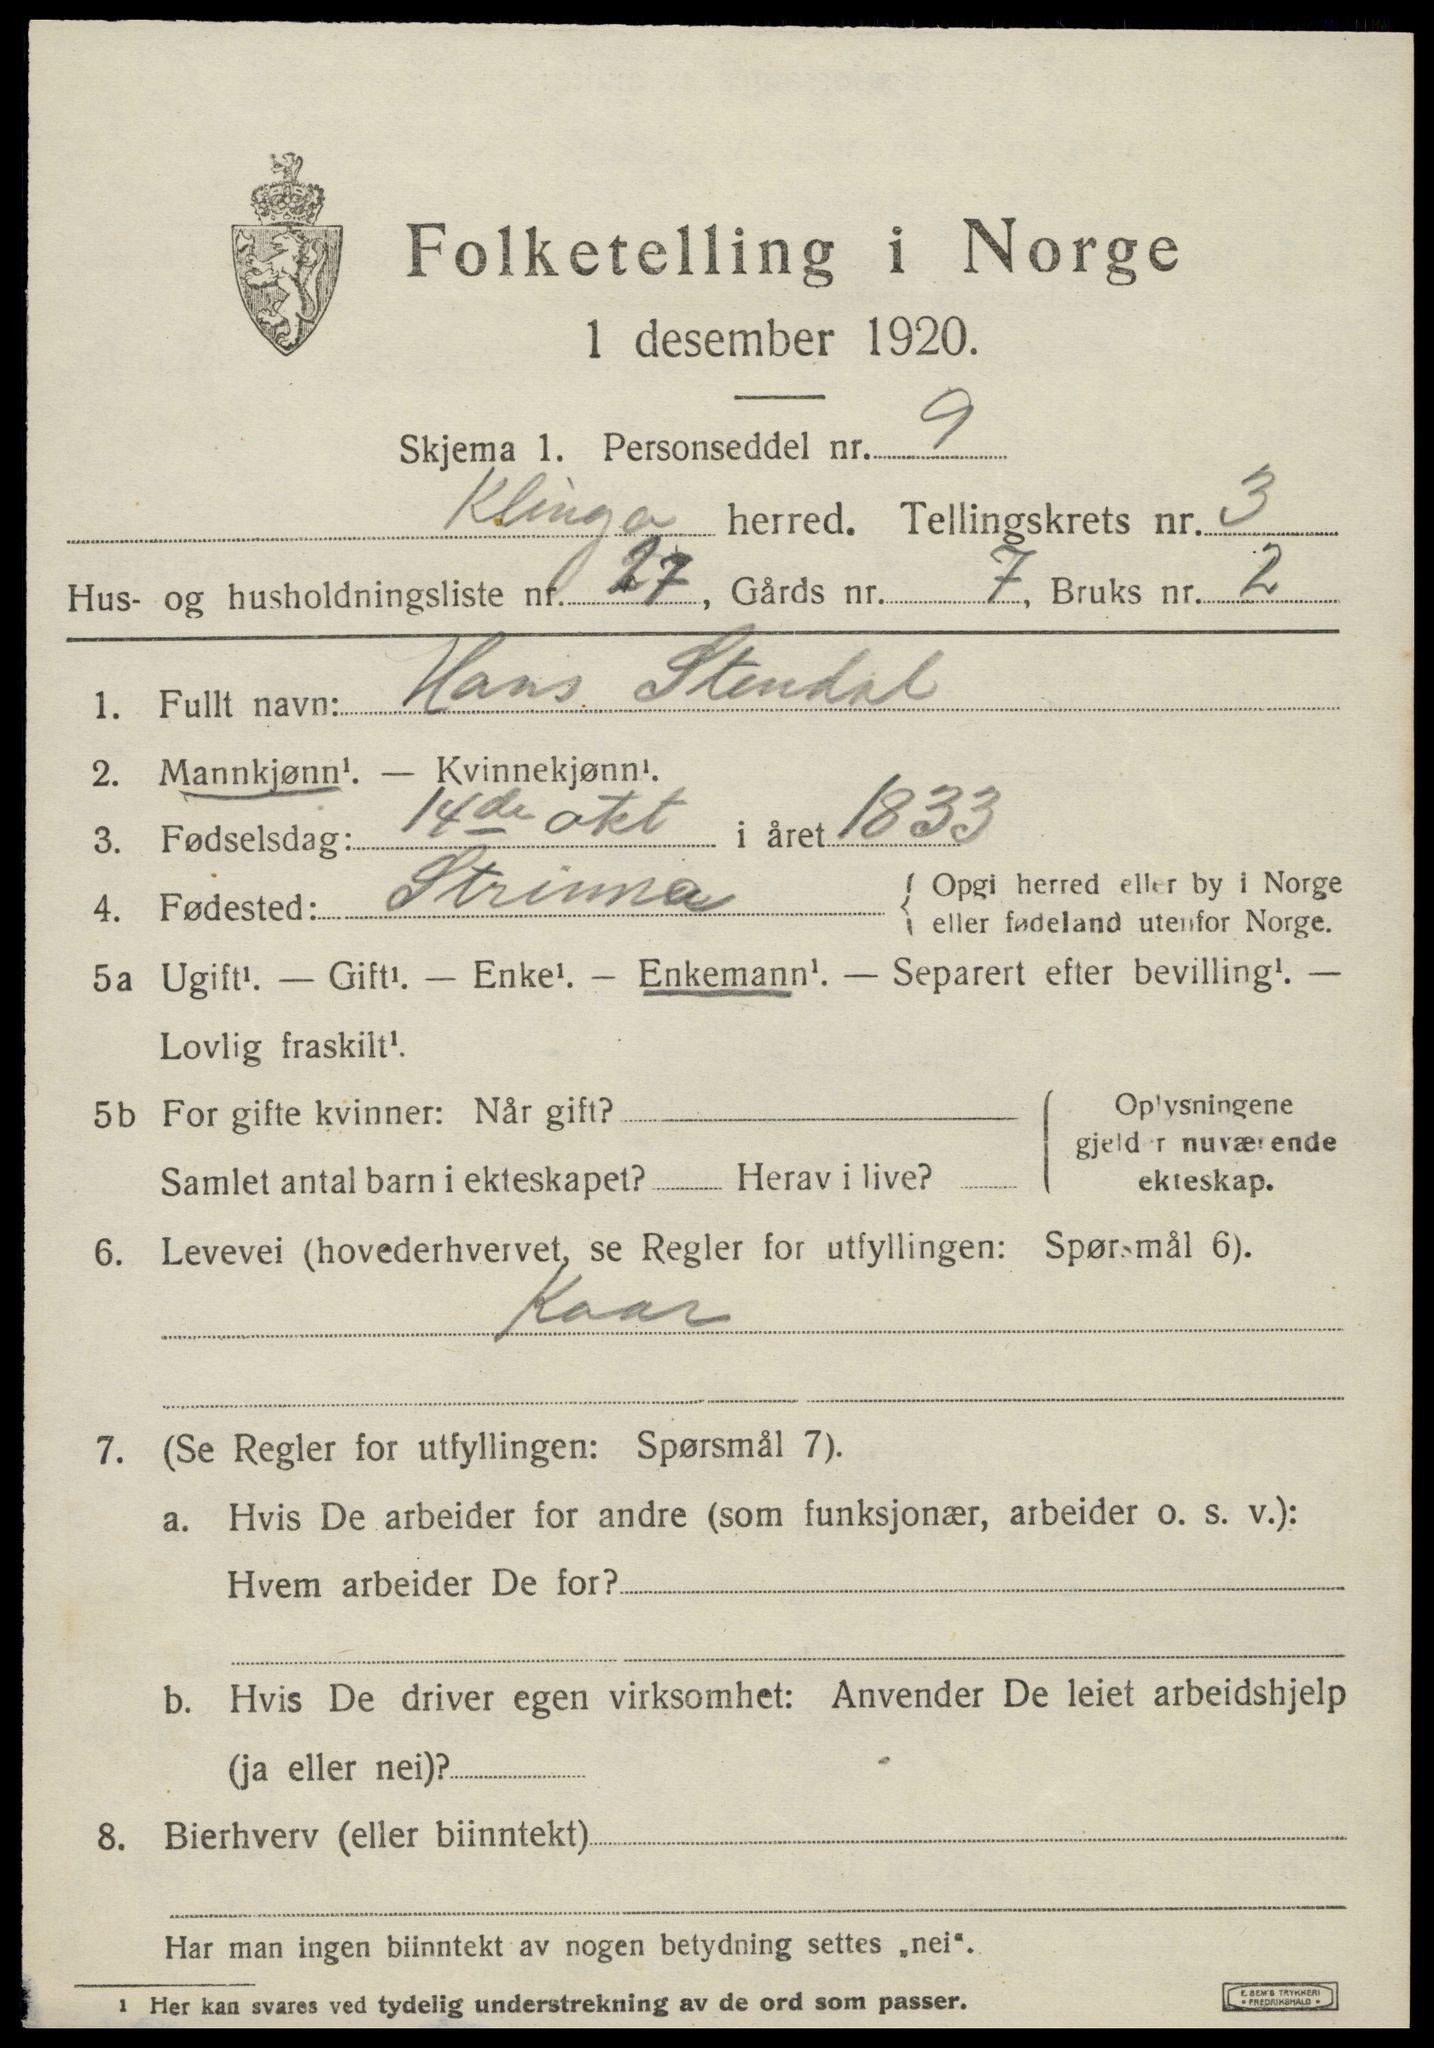 Folketelling i Norge
1 desember 1920.
Skjema 1. Personseddel nr. 9
Klinga herred. Tellingskrets nr. 3
Hus- og husholdningsliste nr. 27, Gårds nr. 7, Bruks nr. 2
1. Fullt navn: Hans Stendal
2. Mannkjønn¹. — Kvinnekjønn¹.
3. Fødselsdag: 14de okt i året 1833
4. Fødested: Strinna { Opgi herred eller by i Norge
eller fødeland utenfor Norge.
5a Ugift¹. — Gift¹. — Enke¹. — Enkemann¹. — Separert efter bevilling¹. —
Lovlig fraskilt¹.
5b For gifte kvinner: Når gift?
Samlet antal barn i ekteskapet? Herav i live?
Oplysningene
gjelder nuværende
ekteskap.
6. Levevei (hovederhvervet, se Regler for utfyllingen: Spørsmål 6).
Kaar
7. (Se Regler for utfyllingen: Spørsmål 7).
a. Hvis De arbeider for andre (som funksjonær, arbeider o. s. v.):
Hvem arbeider De for?
b. Hvis De driver egen virksomhet: Anvender De leiet arbeidshjelp
(ja eller nei)?
8. Bierhverv (eller biinntekt)
Har man ingen biinntekt av nogen betydning settes „nei“.
1 Her kan svares ved tydelig understrekning av de ord som passer.
E. SEM'S TRYKKERI
• FREDRIKSHALD •